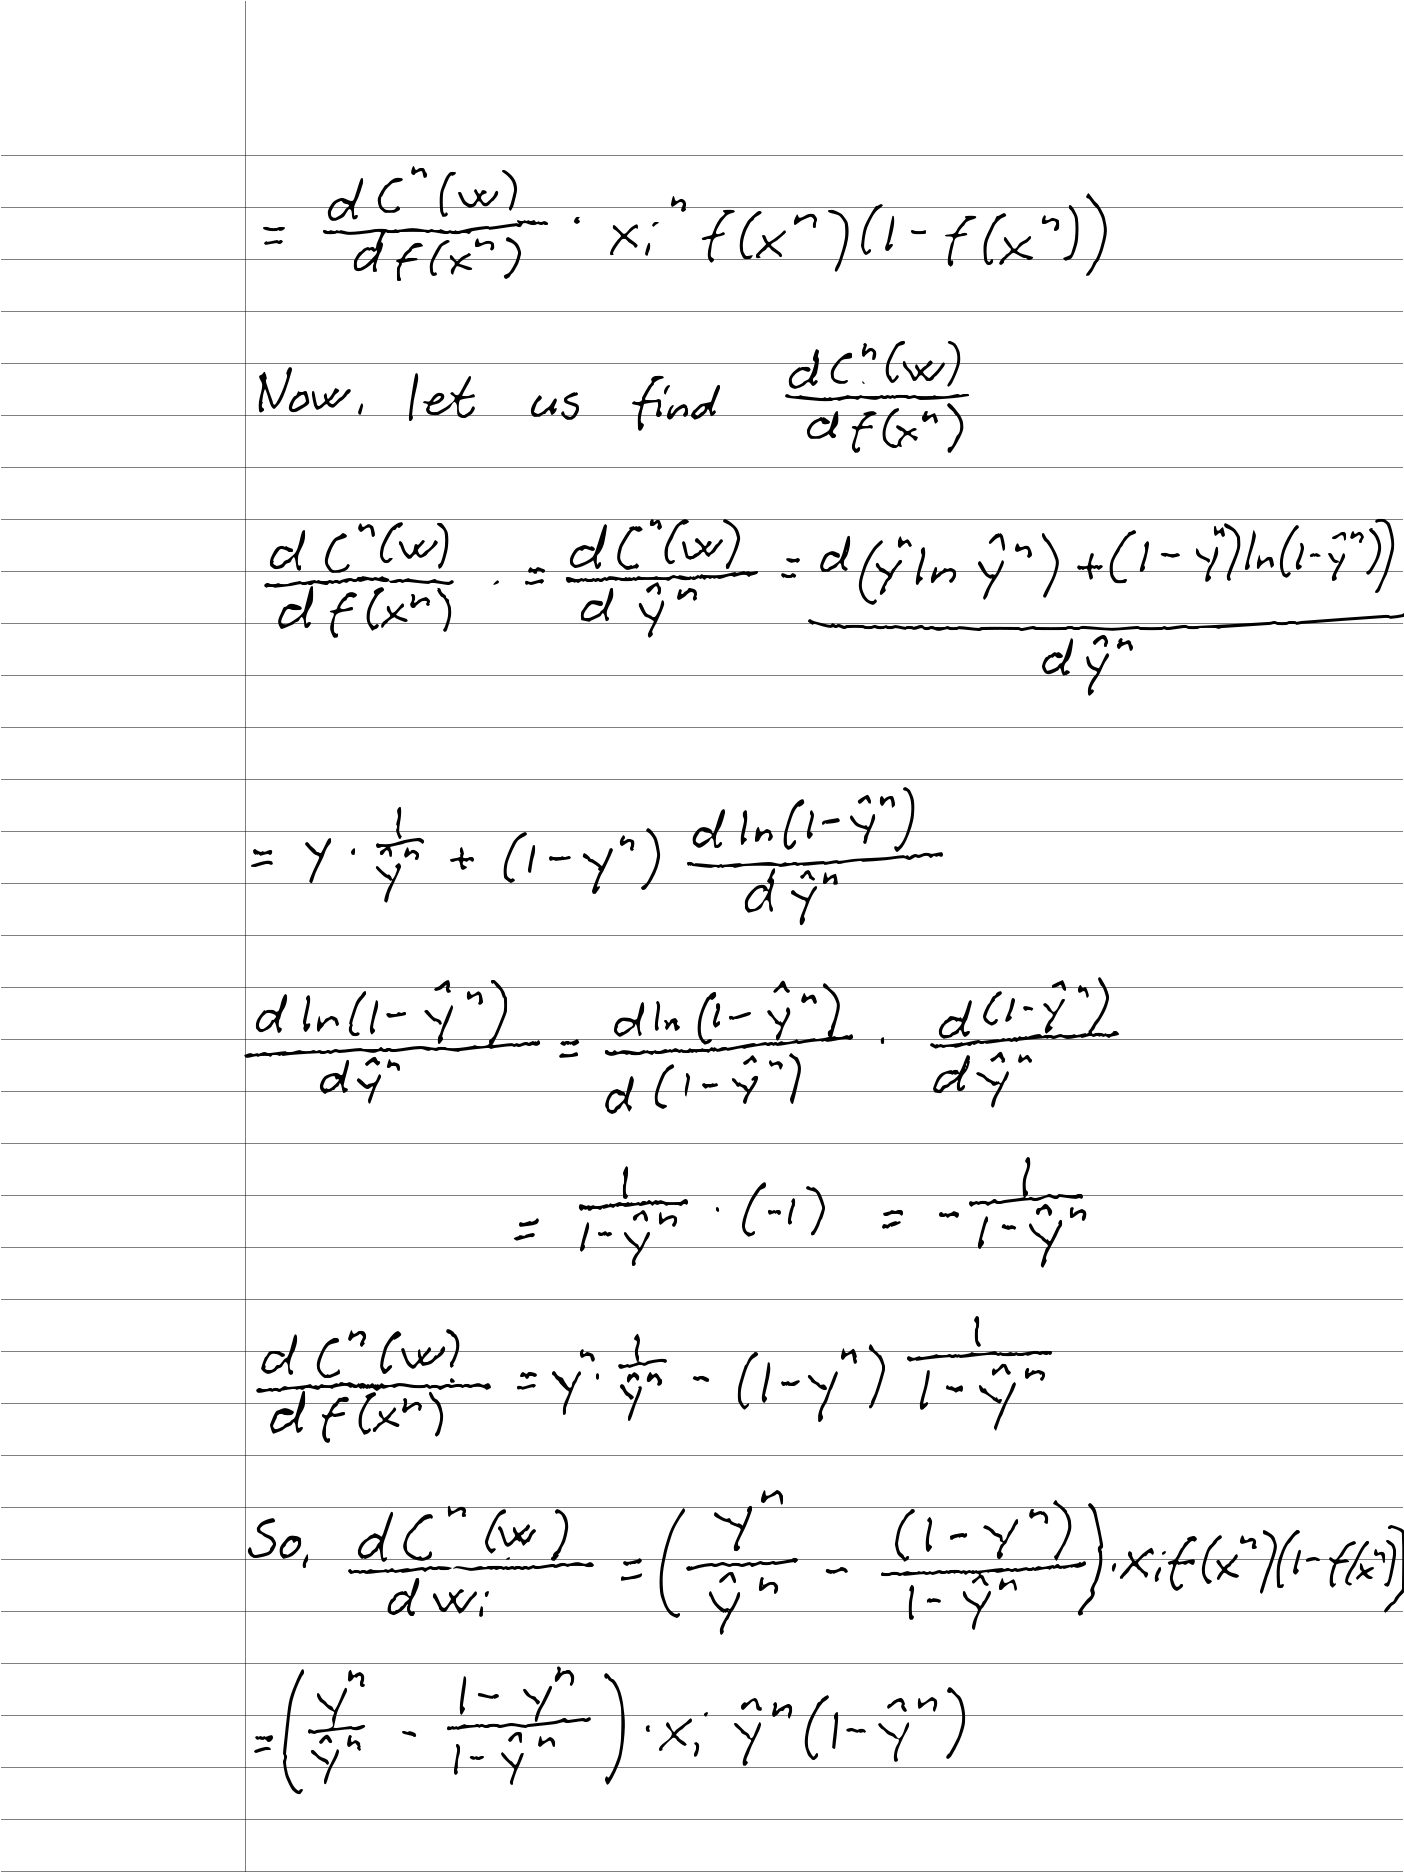 = dCⁿ(w)/df(xⁿ) · xᵢⁿ f(xⁿ)(1 - f(xⁿ))
Now, let us find dCⁿ(w)/df(xⁿ)
dCⁿ(w)/df(xⁿ) · = dCⁿ(w)/dŷⁿ = d(yⁿ ln ŷⁿ) + (1 - yⁿ) ln(1 - ŷⁿ))/dŷⁿ
= y · 1/ŷⁿ + (1 - yⁿ) d ln(1 - ŷⁿ)/dŷⁿ
d ln(1 - ŷⁿ)/dŷⁿ = d ln(1 - ŷⁿ)/d(1 - ŷⁿ) · d(1 - ŷⁿ)/dŷⁿ
= 1/(1 - ŷⁿ) · (-1) = - 1/(1 - ŷⁿ)
dCⁿ(w)/df(xⁿ) = yⁿ · 1/ŷⁿ - (1 - yⁿ) 1/(1 - ŷⁿ)
So, dCⁿ(w)/dwᵢ = (yⁿ/ŷⁿ - (1 - yⁿ)/(1 - ŷⁿ)) · xᵢ f(xⁿ)(1 - f(xⁿ))
= (yⁿ/ŷⁿ - (1 - yⁿ)/(1 - ŷⁿ)) · xᵢ ŷⁿ(1 - ŷⁿ)